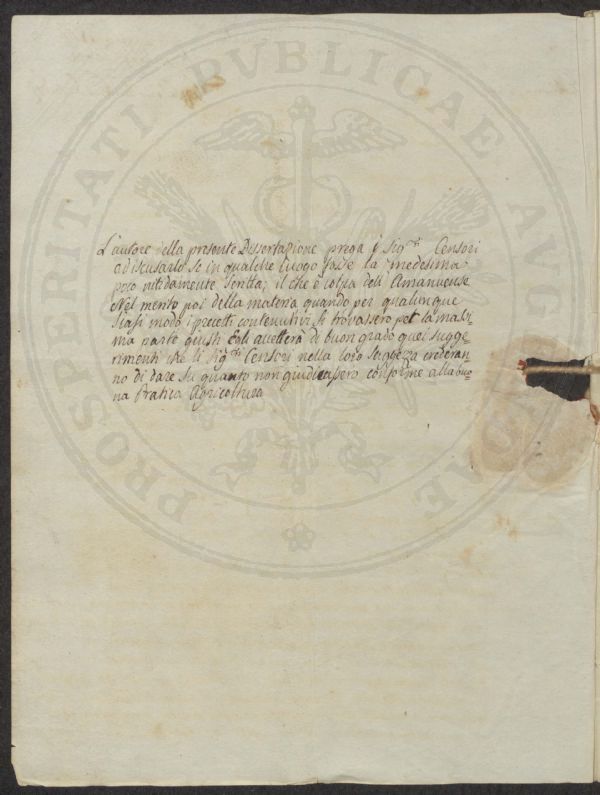 PROSPERITATI PVBLICAE AVGENDAE
L'autore della presente Dissertazione prega i Sig.ri Censori
a discusarlo se in qualche luogo fosse la medesima
poco nitidamente scritta; il che è colpa dell'Amanuense.
Nel merito poi della materia quando per qualunque
siasi modo i precetti contenutivi si trovassero per la mass̱i
ma parte giusti Egli accetterà di buon grado quei sugge
rimenti che li Sig.ri Censori nella loro Saghezza crederan
no di dare su quanto non giudicassero conforme alla buo
na Pratica Agricoltura